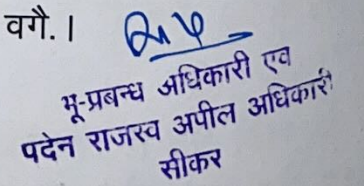 वगै. ।
भू-प्रबन्ध अधिकारी एव
पदेन राजस्व अपील अधिकारी
सीकर